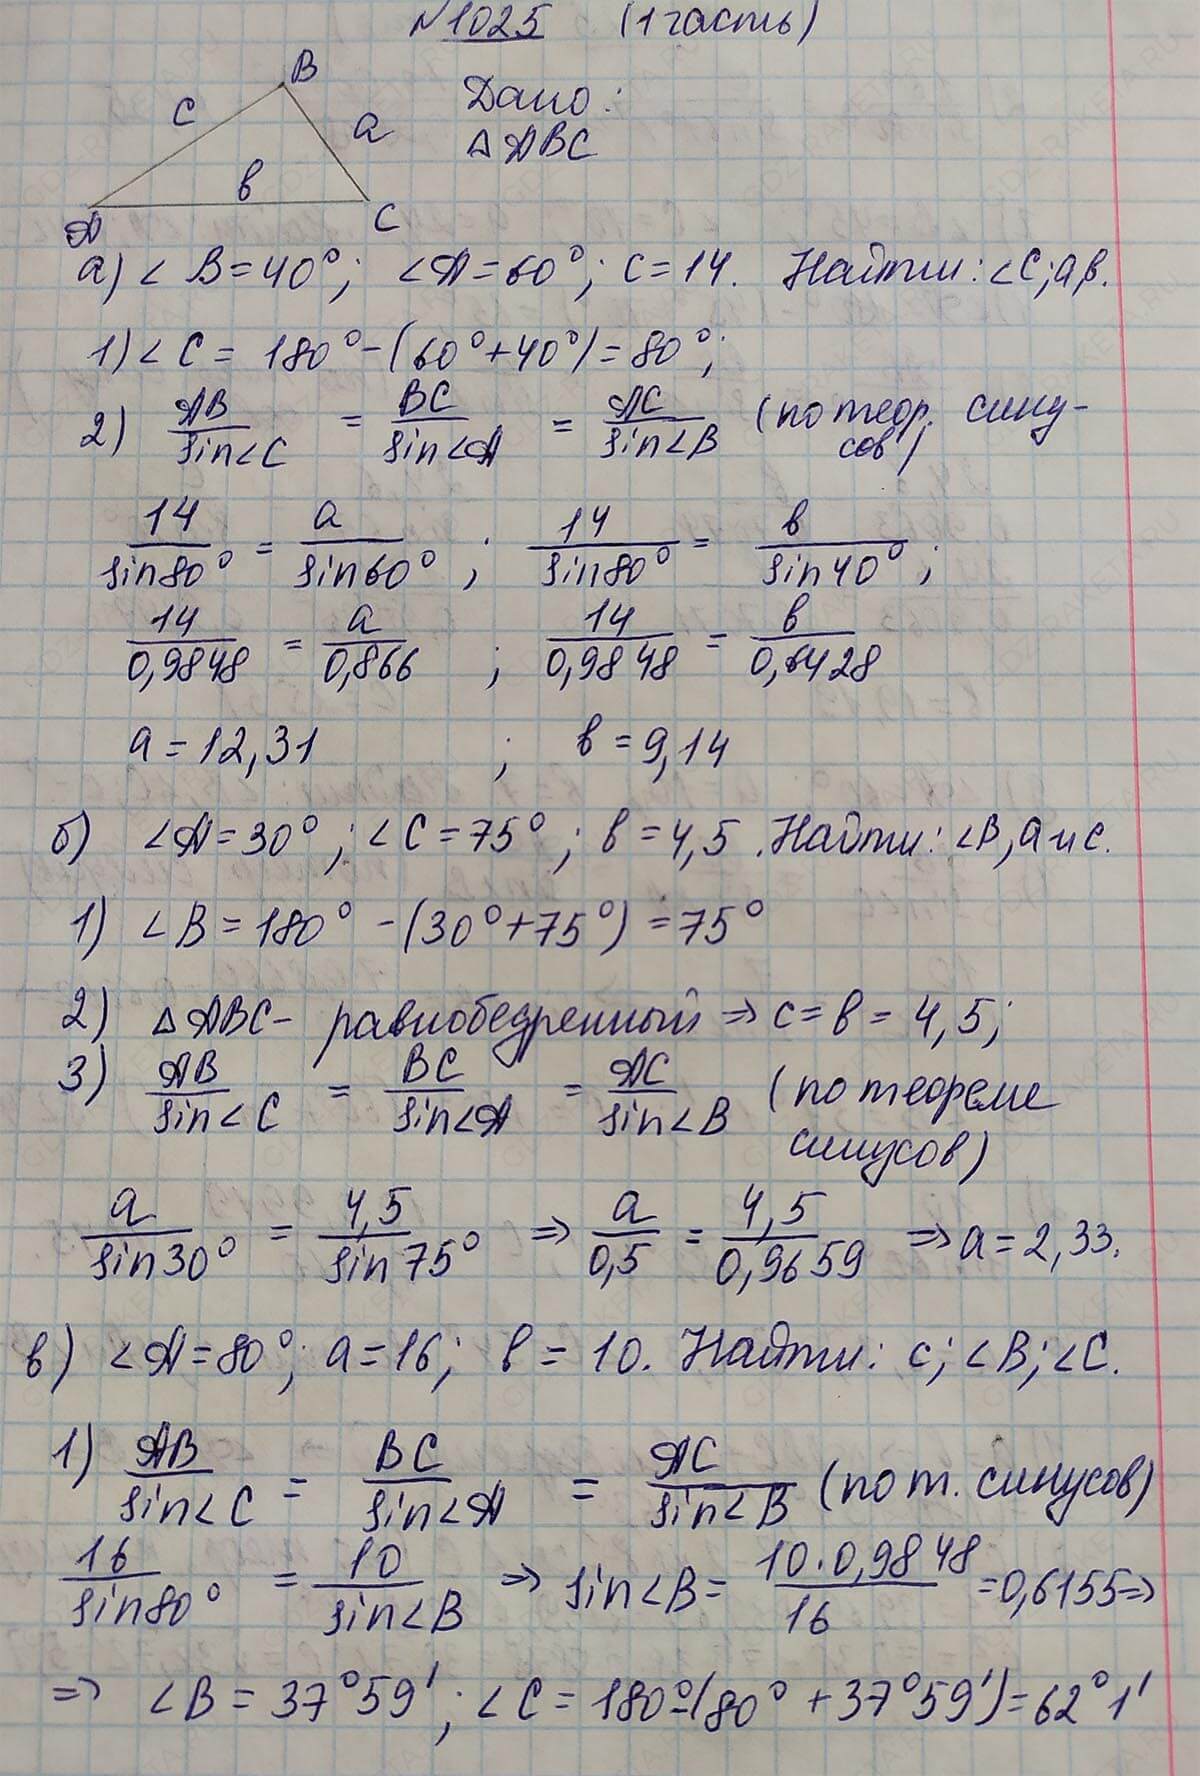 №1025 (1 часть)
B
c
a
в
A
C
Дано:
△ABC
а) ∠B=40°; ∠A=60°; c=14. Найти: ∠C; a, в.
1) ∠C = 180°-(60°+40°)=80°;
2) AB/sin∠C = BC/sin∠A = AC/sin∠B (по теор. сину-
сов)
14/sin80° = a/sin60° ; 14/sin80° = в/sin40° ;
14/0,9848 = a/0,866 ; 14/0,9848 = в/0,6428
a=12,31 ; в=9,14
б) ∠A=30°; ∠C=75°; в=4,5. Найти: ∠B, a и c.
1) ∠B=180° -(30°+75°)=75°
2) △ABC- равнобедренный ⇒ c=в=4,5;
3) AB/sin∠C = BC/sin∠A = AC/sin∠B (по теореме
синусов)
a/sin30° = 4,5/sin75° ⇒ a/0,5 = 4,5/0,9659 ⇒ a=2,33.
в) ∠A=80°; a=16; в=10. Найти: c; ∠B; ∠C.
1) AB/sin∠C = BC/sin∠A = AC/sin∠B (по т. синусов)
16/sin80° = 10/sin∠B ⇒ sin∠B = 10·0,9848/16 =0,6155⇒
⇒ ∠B = 37°59'; ∠C = 180°-(80° +37°59')=62°1'